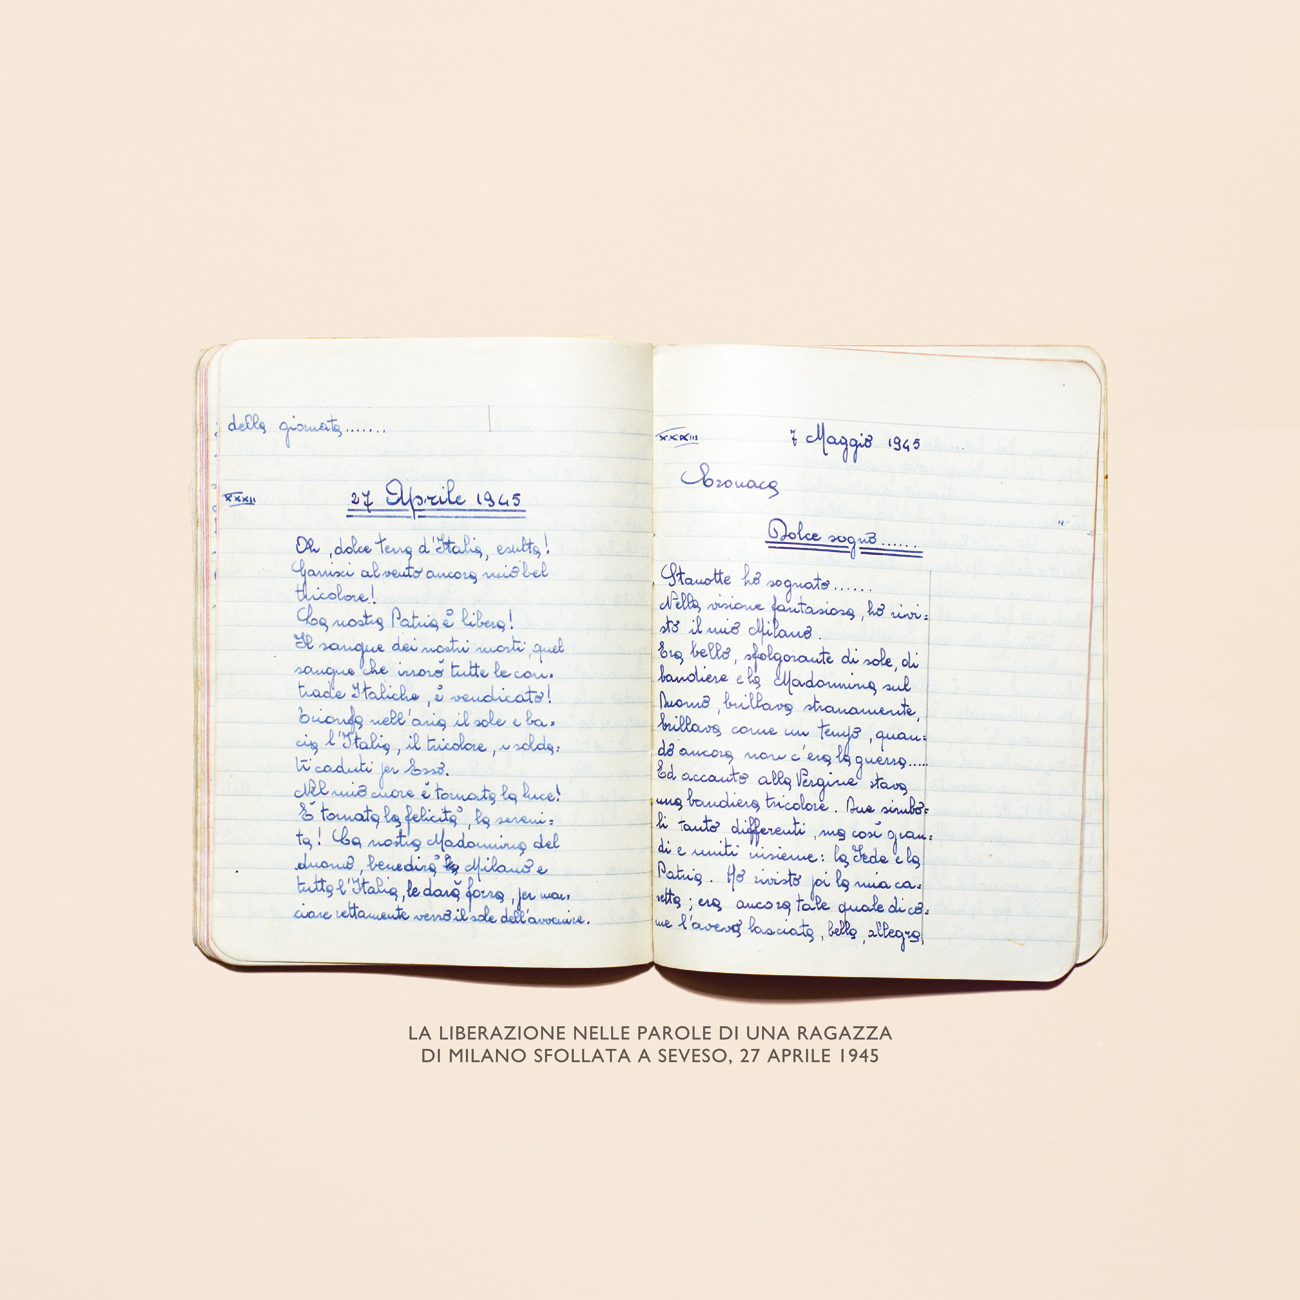 della giornata.......
XXXII
27 Aprile 1945
Oh, dolce terra d'Italia, esulta!
Garrisci al vento ancora mio bel
tricolore!
La nostra Patria è libera!
Il sangue dei nostri morti, quel
sangue che irrorò tutte le con-
trade Italiche, è vendicato!
Trionfa nell'aria il sole e ba-
cia l'Italia, il tricolore, i solda-
ti caduti per Essa.
Nel mio cuore è tornata la luce!
È tornata la felicità, la sereni-
tà! La nostra Madonnina del
duomo, benedirà Milano e
tutta l'Italia, le darà forza, per mar-
ciare rettamente verso il sole dell'avvenire.
XXXIII
7 Maggio 1945
Cronaca
Dolce sogno......
Stanotte ho sognato......
Nella visione fantasiosa, ho rivi-
sto il mio Milano.
Era bello, sfolgorante di sole, di
bandiere e la Madonnina sul
Duomo, brillava stranamente,
brillava come un tempo, quan-
do ancora non c'era la guerra.....
Ed accanto alla Vergine stava
una bandiera tricolore. Due simbo-
li tanto differenti, ma così gran-
di e uniti insieme: la Fede e la
Patria. Ho rivisto poi la mia ca-
setta; era ancora tale quale di co-
me l'avevo lasciata, bella, allegra,
LA LIBERAZIONE NELLE PAROLE DI UNA RAGAZZA
DI MILANO SFOLLATA A SEVESO, 27 APRILE 1945